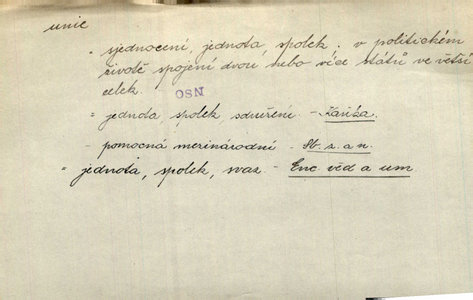 unie
" sjednocení, jednota, spolek; v politickém
životě spojení dvou nebo více států ve větší
celek. OSN
" jednota, spolek, sdružení. - Kaňka.
- pomocná mezinárodní - Sb. z. a n.
" jednota, spolek, svaz. - Enc. věd a um.